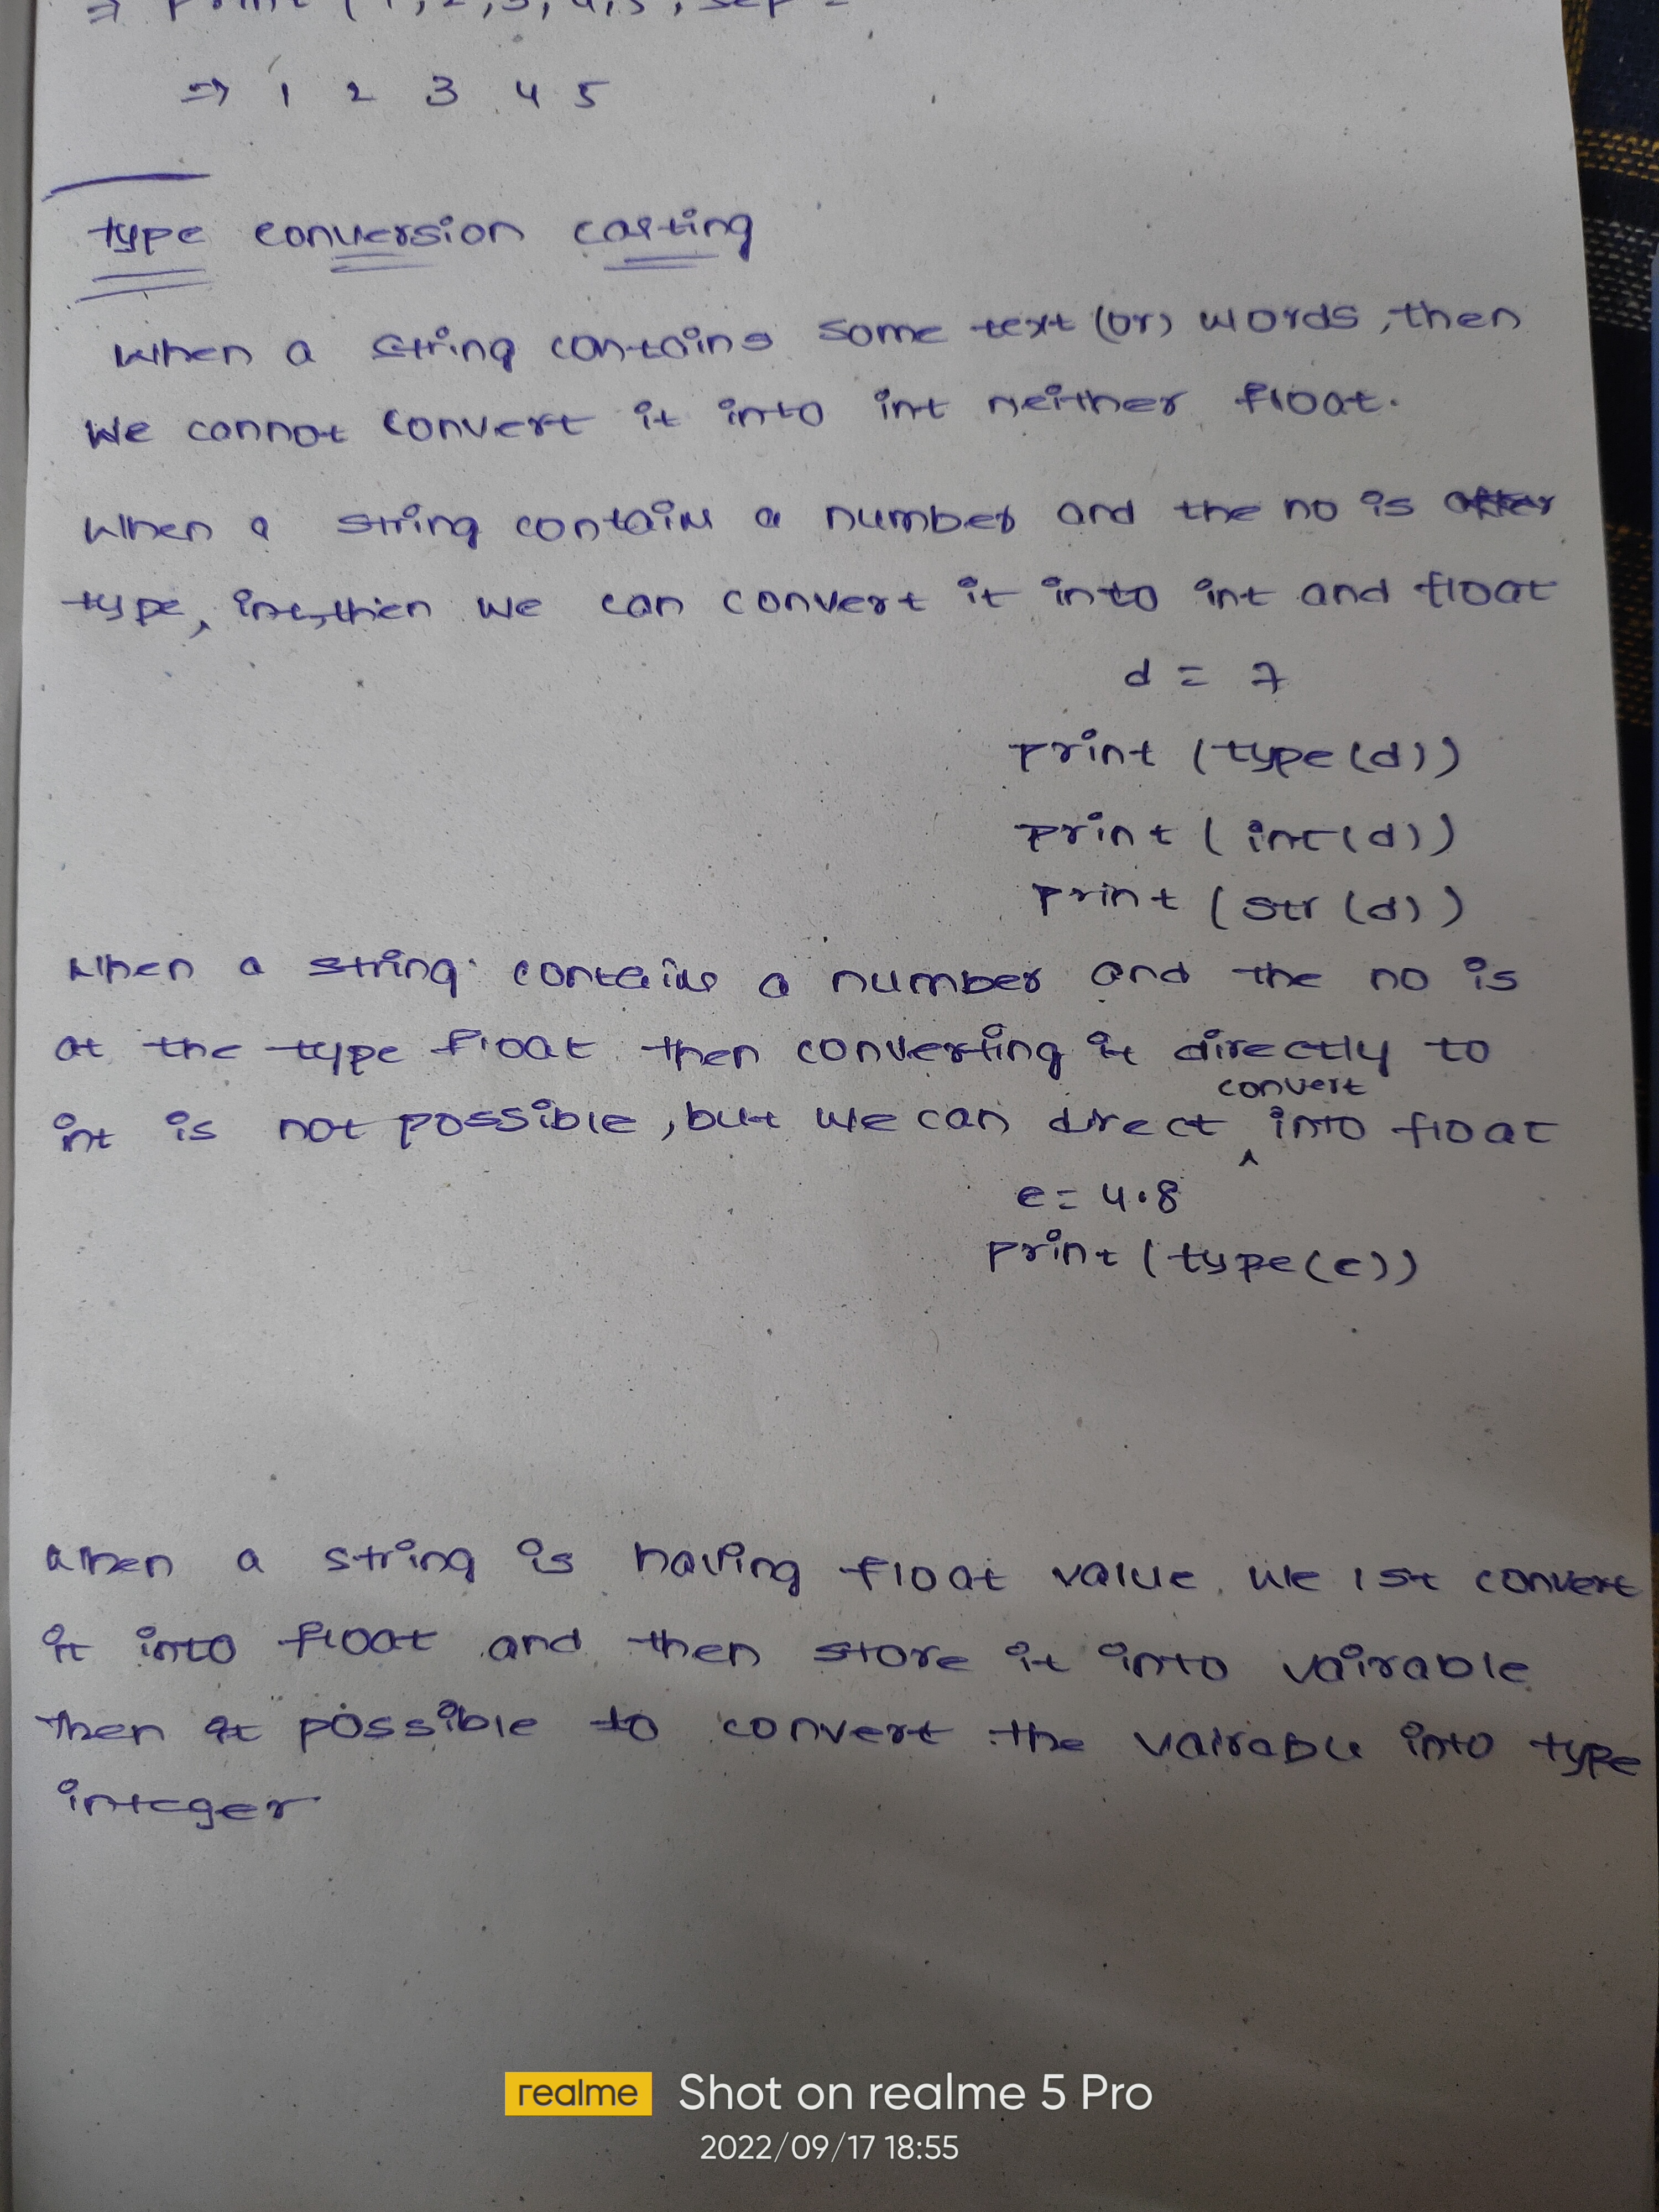 ⇒ print (1,2,3,4,5, sep =
⇒ 1 2 3 4 5
type conversion casting
When a string contains some text (or) words, then
we cannot convert it into int neither float.
When a string contains a number and the no is
type, int, then we can convert it into int and float
d = 7
print (type(d))
print (int(d))
print (str(d))
When a string contains a number and the no is
at the type float then converting it directly to
int is not possible, but we can direct convert into float
e = 4.8
print (type(e))
When a string is having float value, we 1st convert
it into float and then store it into vairable
Then it possible to convert the vairable into type
integer
realme Shot on realme 5 Pro
2022/09/17 18:55